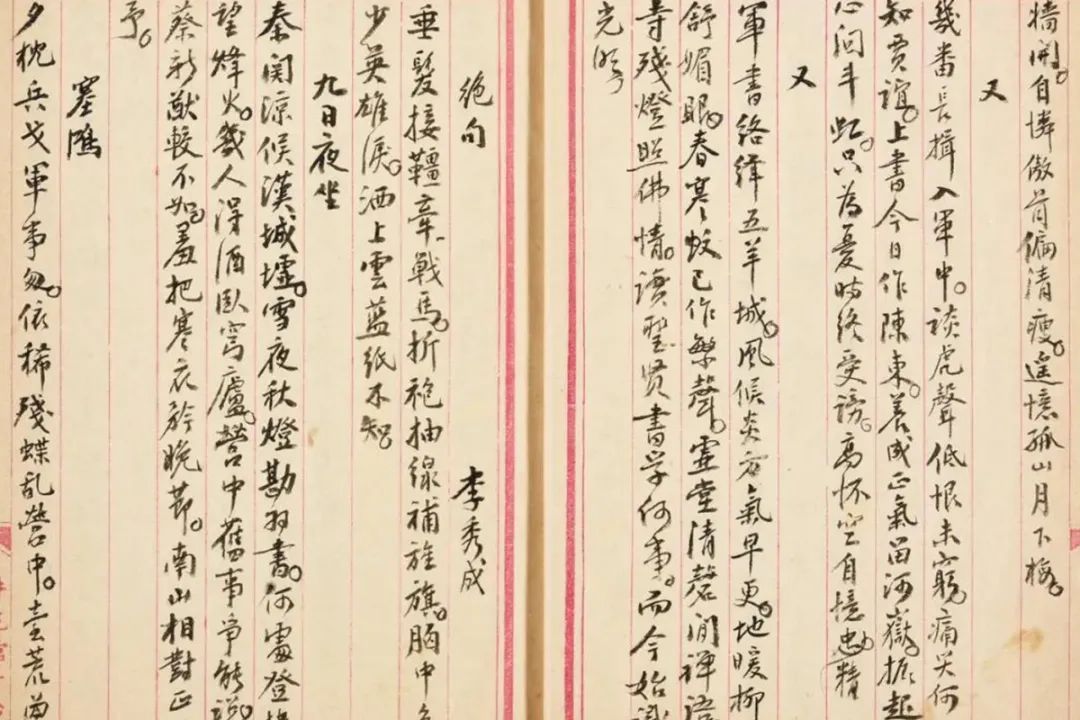 牆開。自憐傲骨偏清瘦。遙憶孤山月下梅。
又
幾番長揖入軍中。談虎聲低恨未窮。痛哭何
知賈誼。上書今日作陳東。養成正氣留河嶽。振起
心問斗虹。只為憂時終受謗。高怀空自憶忠精
又
軍書絡繹五羊城。風候炎方氣早更。地暖柳
舒媚眼。春寒蚊已作繁聲。虛堂清磬間禪語
寺殘燈照佛情。讀聖賢書学何事。而今始識
光明
绝句
李秀成
垂髮接韁牽戰馬。折袍抽線補旌旗。胸中
少英雄淚。洒上雲藍紙不知。
九日夜坐
秦関涼候漢城墟。雪夜秋燈勘羽書。何處登
望烽火。幾人得酒臥穹廬。營中舊事爭能說。
蔡新猷較不如。羞把寒衣矜晚節。南山相對正
予。
塞鴻
夕枕兵戈軍事忽。依稀殘蝶乱營中。